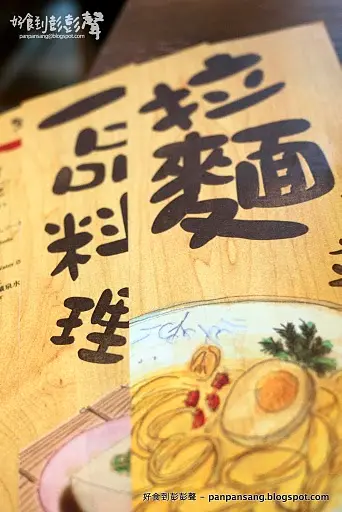 好食到彭彭聲
panpansang@blogspot.com
拉麵
一品料理
礦泉水
好食到彭彭聲 - panpansang.blogspot.com